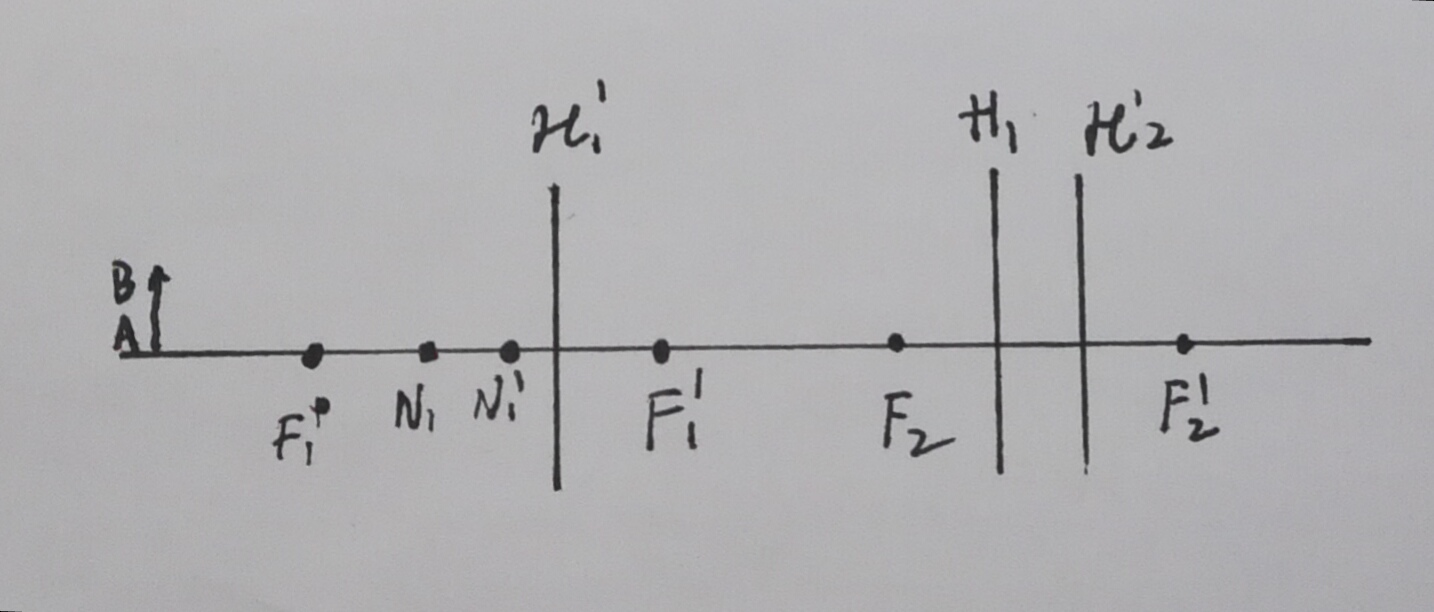 H₁' H₁ H₂'
B
A
F₁ N₁ N₁' F₁' F₂ F₂'